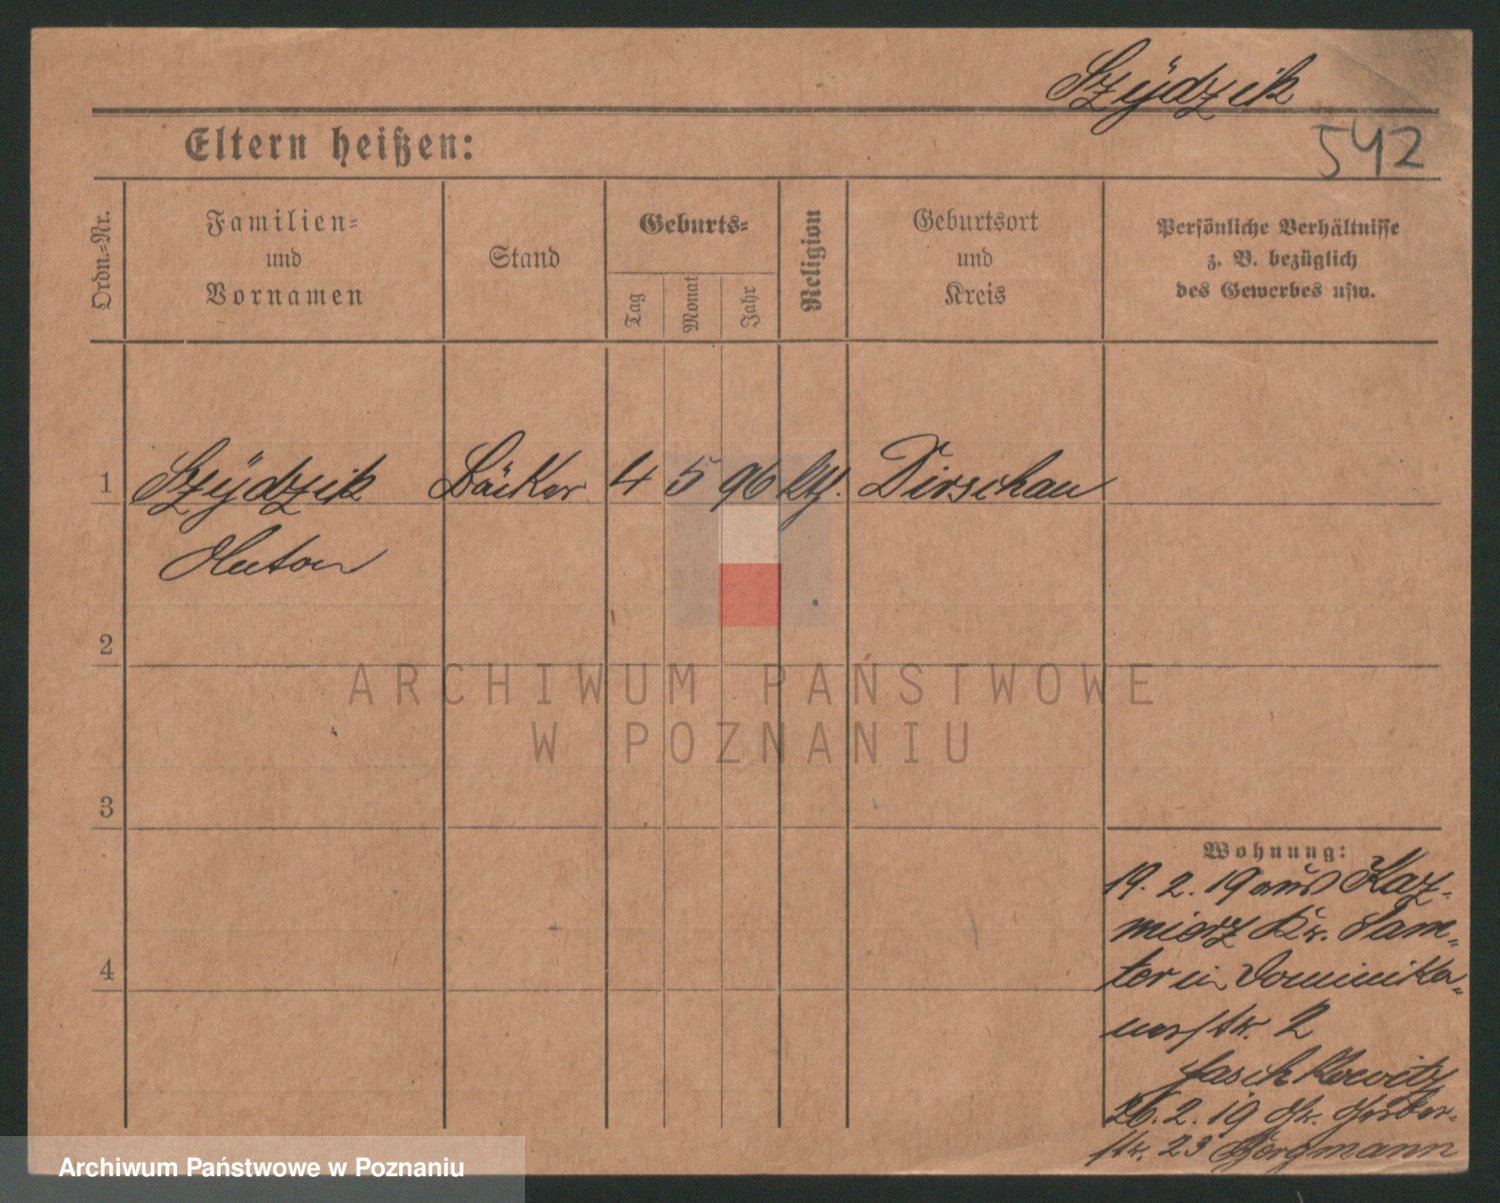 Szÿdzik
Eltern heißen:
542
Ordn.-Nr.
Familien-
und
Vornamen
Stand
Geburts-
Tag
Monat
Jahr
Religion
Geburtsort
und
Kreis
Persönliche Verhältnisse
z. B. bezüglich
des Gewerbes usw.
1 Szÿdzik Bäcker 4 5 96 kth. Dirschau
Anton
2
3
4
ARCHIWUM PAŃSTWOWE
W POZNANIU
Wohnung:
19. 2. 19 aus Kaz-
mierz Kr. Sam-
ter in Dominika-
nerstr. 2
Jaschkowitz
26. 2. 19 Gr. Gerber-
str. 23 Bergmann
Archiwum Państwowe w Poznaniu